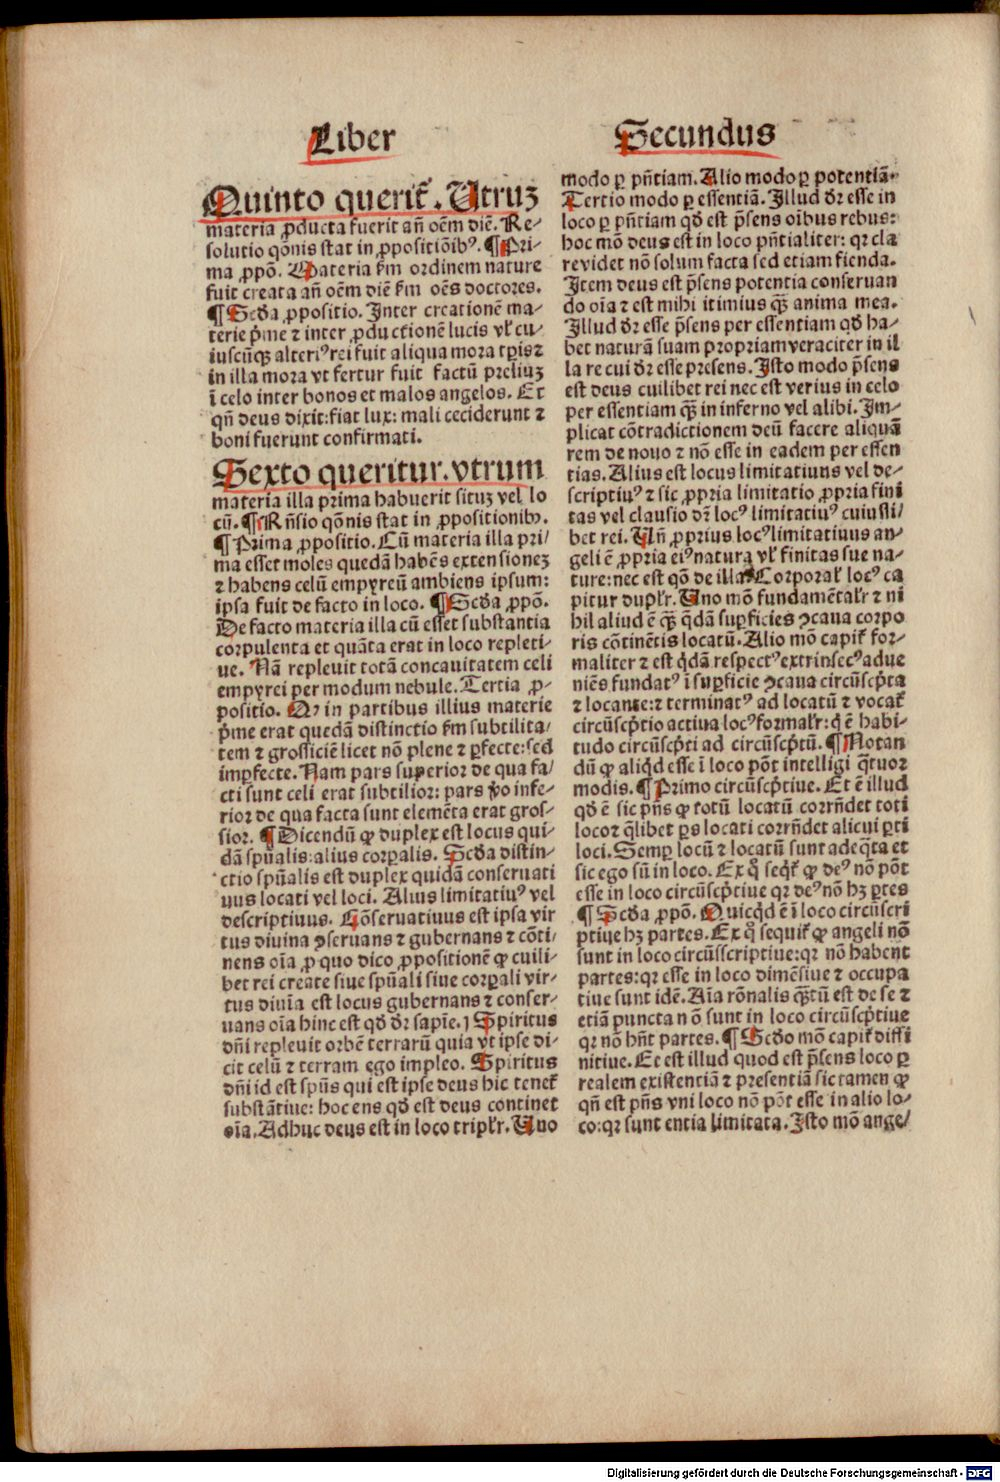 Liber
Secundus
Quinto querit̃. Utruꝫ
materia ꝓducta fuerit añ oẽm diẽ. Re-
solutio qõnis stat in ꝓpositiõibꝰ. ¶ Pri-
ma ꝓpõ. Materia ẜm ordinem nature
fuit creata añ oẽm diẽ ẜm oẽs doctores.
¶ Scđa ꝓpositio. Inter creationẽ ma-
terie p̃me ⁊ inter ꝓductionẽ lucis vl̃ cu/
iuscũqꝫ alteriꝰ rei fuit aliqua mora tꝑis ⁊
in illa mora vt fertur fuit factũ preliuꝫ
ĩ celo inter bonos et malos angelos. Et
qñ deus dixit: fiat lux: mali ceciderunt ⁊
boni fuerunt confirmati.
Sexto queritur. vtrum
materia illa prima habuerit situꝫ vel lo
cũ. ¶ Rñsio qõnis stat in ꝓpositionibꝰ.
¶ Prima ꝓpositio. Cũ materia illa pri/
ma esset moles quedã habẽs extensioneꝫ
⁊ habens celũ empyreũ ambiens ipsum:
ipsa fuit de facto in loco. ¶ Scđa ꝓpõ.
De facto materia illa cũ esset substantia
corpulenta et quãta erat in loco repleti-
ue. Nã repleuit totã concauitatem celi
empyrei per modum nebule. Tertia ꝓ-
positio. Qꝛ in partibus illius materie
p̃me erat quedã distinctio ẜm subtilita/
tem ⁊ grossiciẽ licet nõ plene ⁊ ꝑfecte: sed
imꝑfecte. Nam pars superior de qua fa/
cti sunt celi erat subtilior: pars ṽo infe-
rior de qua facta sunt elemẽta erat gros-
sior. ¶ Dicendũ ꝙ duplex est locus qui-
dã spũalis: alius corꝑalis. Scđa distin-
ctio spũalis est duplex quidã conseruati
uus locati vel loci. Alius limitatiuꝰ vel
descriptiuus. Cõseruatiuus est ipsa vir
tus diuina ꝯseruans ⁊ gubernans ⁊ cõti/
nens oĩa ꝓ quo dico ꝓpositionẽ ꝙ cuili-
bet rei create siue spũali siue corꝑali vir-
tus diuĩa est locus gubernans ⁊ conser-
uans oĩa hinc est qđ dr̃ sapiẽ. 1 Spiritus
dñi repleuit orbẽ terrarũ quia vt ipse di-
cit celũ ⁊ terram ego impleo. Spiritus
dñi id est spũs qui est ipse deus hic tenet̃
substãtiue: hoc ens qđ est deus continet
oĩa. Adhuc deus est in loco tripl̃r. Uno
modo ꝑ pñtiam. Alio modo ꝑ potentiã.
Tertio modo ꝑ essentiã. Illud dr̃ esse in
loco ꝑ pñtiam qđ est p̃sens oĩbus rebus:
hoc mõ deus est in loco pñtialiter: qꝛ cla
re videt nõ solum facta sed etiam fienda.
Item deus est p̃sens potentia conseruan
do oĩa ⁊ est mihi itimius qꝫ̃ anima mea.
Illud dr̃ esse p̃sens per essentiam qđ ha-
bet naturã suam propriam veraciter in il
la re cui dr̃ esse presens. Isto modo p̃sens
est deus cuilibet rei nec est verius in celo
per essentiam qꝫ̃ in inferno vel alibi. Im-
plicat cõtradictionem deũ facere aliquã
rem de nouo ⁊ nõ esse in eadem per essen
tias. Alius est locus limitatiuus vel de-
scriptiuꝰ ⁊ sic ꝓpria limitatio ꝓpria fini
tas vel clausio dr̃ locꝰ limitatiuꝰ cuiusli/
bet rei. Uñ ꝓprius locꝰ limitatiuus an-
geli ẽ ꝓpria eiꝰ natura vl̃ finitas sue na-
ture: nec est qõ de illa. Corporal̃ locꝰ ca
pitur dupl̃r. Uno mõ fundamẽtal̃r ⁊ ni
hil aliud ẽ qꝫ̃ q̃dã suꝑficies ꝯcaua corpo
ris cõtinẽtis locatũ. Alio mõ capit̃ for-
maliter ⁊ est q̃dã respectꝰ extrinsecꝰ adue
niẽs fundatꝰ ĩ suꝑficie ꝯcaua circũscp̃ta
⁊ locante: ⁊ terminatꝰ ad locatũ ⁊ vocat̃
circũscp̃tio actiua locꝰ formal̃r: q̃ ẽ habi-
tudo circũscp̃ti ad circũscp̃tũ. ¶ Notan
dũ ꝙ aliq̃d esse ĩ loco põt intelligi q̃tuor
modis. ¶ Primo circũscp̃tiue. Et ẽ illud
qđ ẽ sic pñs ꝙ totũ locatũ corrñdet toti
loco ⁊ q̃libet ꝑs locati corrñdet alicui ꝑti
loci. Semꝑ locũ ⁊ locatũ sunt adeq̃ta et
sic ego sũ in loco. Ex q̃ seq̃t̃ ꝙ deꝰ nõ põt
esse in loco circũscp̃tiue qꝛ deꝰ nõ hꝫ ꝑtes
¶ Scđa ꝓpõ. Quicq̃d ẽ ĩ loco circũscri
ptiue hꝫ partes. Ex q̃ sequit̃ ꝙ angeli nõ
sunt in loco circũsscriptiue: qꝛ nõ habent
partes: qꝛ esse in loco dimẽsiue ⁊ occupa
tiue sunt idẽ. Aĩa rõnalis qꝫ̃tũ est de se ⁊
etiã puncta nõ sunt in loco circũscp̃tiue
qꝛ nõ hñt partes. ¶ Scđo mõ capit̃ diffi
nitiue. Et est illud quod est p̃sens loco ꝑ
realem existentiã ⁊ presentiã sic tamen ꝙ
qñ est pñs vni loco nõ põt esse in alio lo-
co: qꝛ sunt entia limitata. Isto mõ ange/
Digitalisierung gefördert durch die Deutsche Forschungsgemeinschaft - DFG